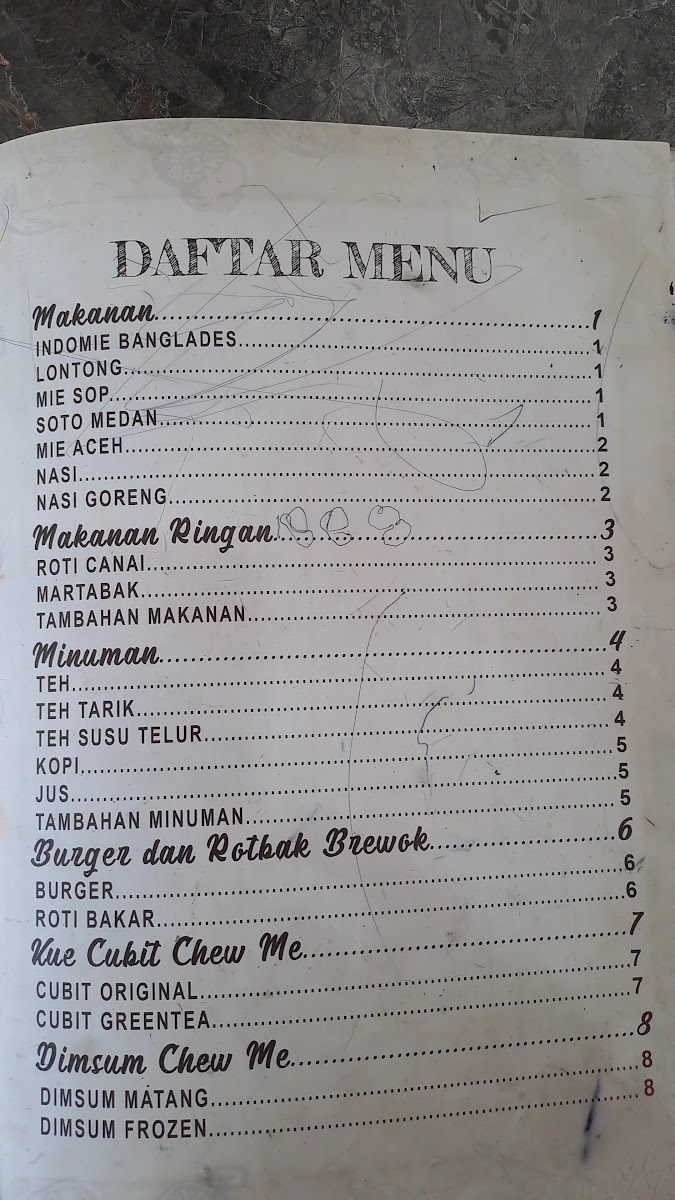 DAFTAR MENU
Makanan........................1
INDOMIE BANGLADES........................1
LONTONG........................1
MIE SOP........................1
SOTO MEDAN........................1
MIE ACEH........................2
NASI........................2
NASI GORENG........................2
Makanan Ringan........................3
ROTI CANAI........................3
MARTABAK........................3
TAMBAHAN MAKANAN........................3
Minuman........................4
TEH........................4
TEH TARIK........................4
TEH SUSU TELUR........................4
KOPI........................5
JUS........................5
TAMBAHAN MINUMAN........................5
Burger dan Rotbak Brewok........................6
BURGER........................6
ROTI BAKAR........................6
Kue Cubit Chew Me........................7
CUBIT ORIGINAL........................7
CUBIT GREENTEA........................7
Dimsum Chew Me........................8
DIMSUM MATANG........................8
DIMSUM FROZEN........................8